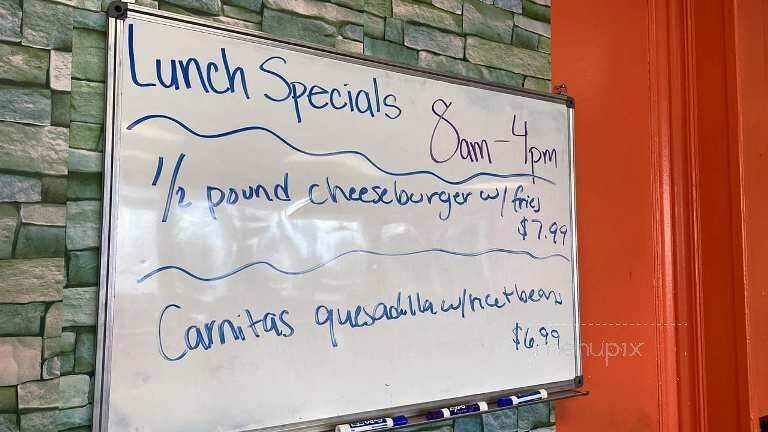 Lunch Specials
8am - 4pm
1/2 pound cheeseburger w/ fries
$7.99
Carnitas quesadilla w/rice+beans
$6.99
menupix
EXPO